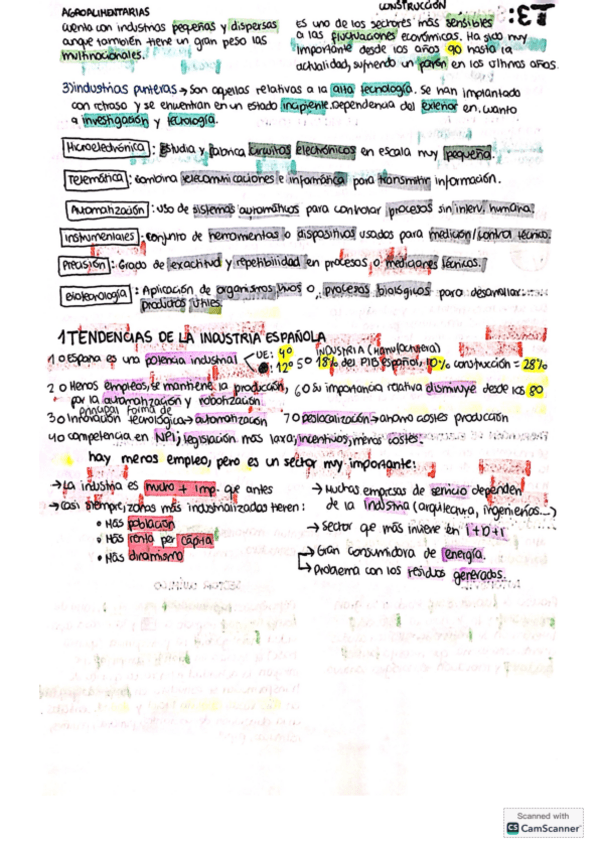 T3:
AGROALIMENTARIAS
cuenta con industrias pequeñas y dispersas
anque también tiene un gran peso las
multinacionales.
CONSTRUCCIÓN
es uno de los sectores más sensibles
a las fluctuaciones económicas. Ha sido muy
importante desde los años 90 hasta la
actualidad, sufriendo un parón en los últimos años.
3) industrias punteras → son aquellas relativas a la alta tecnología. Se han implantado
con retraso y se encuentran en un estado incipiente. Dependencia del exterior en cuanto
a investigación y tecnología.
Microelectrónica: Estudia y fabrica circuitos electrónicos en escala muy pequeña
Telemática: combina telecomunicaciones e informática para transmitir información.
Automatización: uso de sistemas automáticos para controlar procesos sin interv. humana.
Instrumentales: conjunto de herramientas o dispositivos usados para medición/control técnico.
Precisión: Grado de exactitud y repetibilidad en procesos o mediciones técnicos.
Biotecnología: Aplicación de organismos vivos o procesos biológicos para desarrollar
productos útiles.
1 TENDENCIAS DE LA INDUSTRIA ESPAÑOLA
1º España es una potencia industrial
UE: 4º
12º
INDUSTRIA (Manufacturera)
5º 18% del PIB español, 10% construcción = 28%
2º Menos empleos, se mantiene la producción,
por la automatización y robotización.
6º su importancia relativa disminuye desde los 80
principal forma de
3º Innovación tecnológica → automatización
7º Deslocalización → ahorro costes producción
4º competencia en NPI; legislación más laxa, incentivos, menos costes.
hay menos empleo, pero es un sector muy importante:
→ La industria es mucho + imp. que antes
→ Casi siempre, zonas más industrializadas tienen:
• Más población
• Más renta per cápita
• Más dinamismo
→ Muchas empresas de servicio dependen
de la industria (arquitectura, ingenierías...)
→ Sector que más invierte en i+D+i
→ Gran consumidora de energía.
→ Problema con los residuos generados.
Scanned with
CS CamScanner